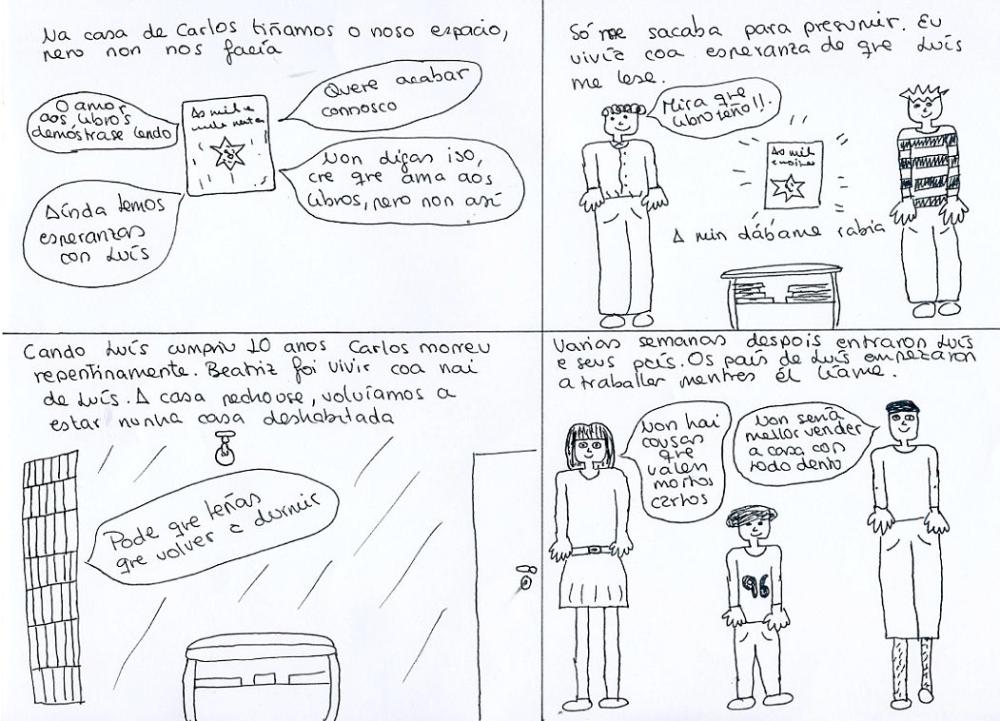 Na casa de Carlos tiñamos o noso espacio,
pero non nos facía
O amor
aos libros
demóstrase lendo
Quere acabar
connosco
As mil e
unha noites
Non digas iso,
cre que ama aos
libros, pero non así
Aínda temos
esperanzas
con Luís
Só me sacaba para presumir. Eu
vivía coa esperanza de que Luís
me lese.
Mira que
libro teño!!.
As mil
e noites
A min dábame rabia
Cando Luís cumpriu 10 anos Carlos morreu
repentinamente. Beatriz foi vivir coa nai
de Luís. A casa pechouse, volvíamos a
estar nunha casa deshabitada
Pode que teñas
que volver a durmir
Varias semanas despois entraron Luís
e seus pais. Os pais de Luís empezaron
a traballar mentres él líame.
Non hai
cousas
que
valen
moitos
cartos
Non sería
mellor vender
a casa con
todo dento
96